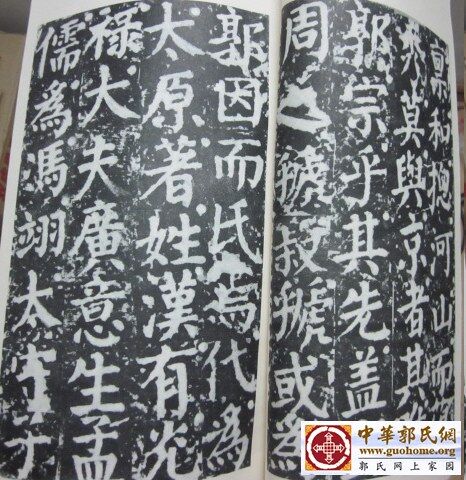 稟和總河山而
秀莫與京者其
郭宗乎其先蓋
周之虢叔虢或為
郭因而氏焉代為
太原著姓漢有光
祿大夫廣意生孟
儒為馮翊太守子
中華郭氏網
www.guohome.org
郭氏网上家园